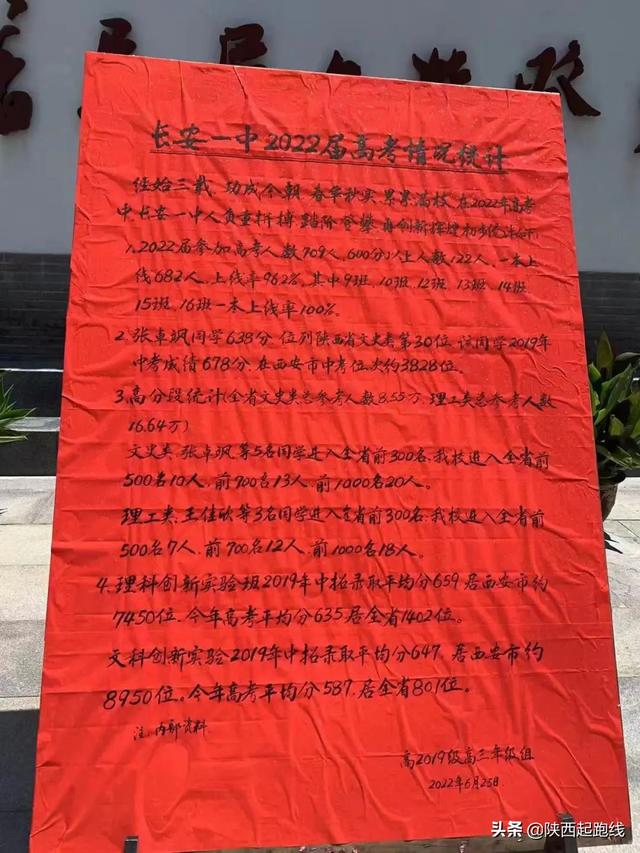 长安一中2022届高考情况统计
经始三载,功成今朝,春华秋实,累累满枝,在2022年高考
中长安一中人负重拼搏,踏阶登攀,再创新辉煌,初步统计如下:
1、2022届参加高考人数709人,600分以上人数122人,一本上
线682人,上线率96.2%,其中9班、10班、12班、13班、14班、
15班、16班一本上线率100%。
2、张卓飒同学638分,位列陕西省文史类第30位,该同学2019年
中考成绩678分,在西安市中考位次约3828位。
3、高分段统计(全省文史类总参考人数8.55万,理工类总参考人数
16.64万)
文史类:张卓飒等5名同学进入全省前300名,我校进入全省前
500名10人,前700名13人,前1000名20人。
理工类:王佳欣等3名同学进入全省前300名,我校进入全省前
500名7人,前700名12人,前1000名18人。
4、理科创新实验班2019年中招录取平均分659,居西安市约
7450位,今年高考平均分635居全省1402位。
文科创新实验2019年中招录取平均分647,居西安市约
8950位。今年高考平均分587,居全省801位。
注:内部资料
高2019级高三年级组
2022年6月25日
头条 @陕西起跑线